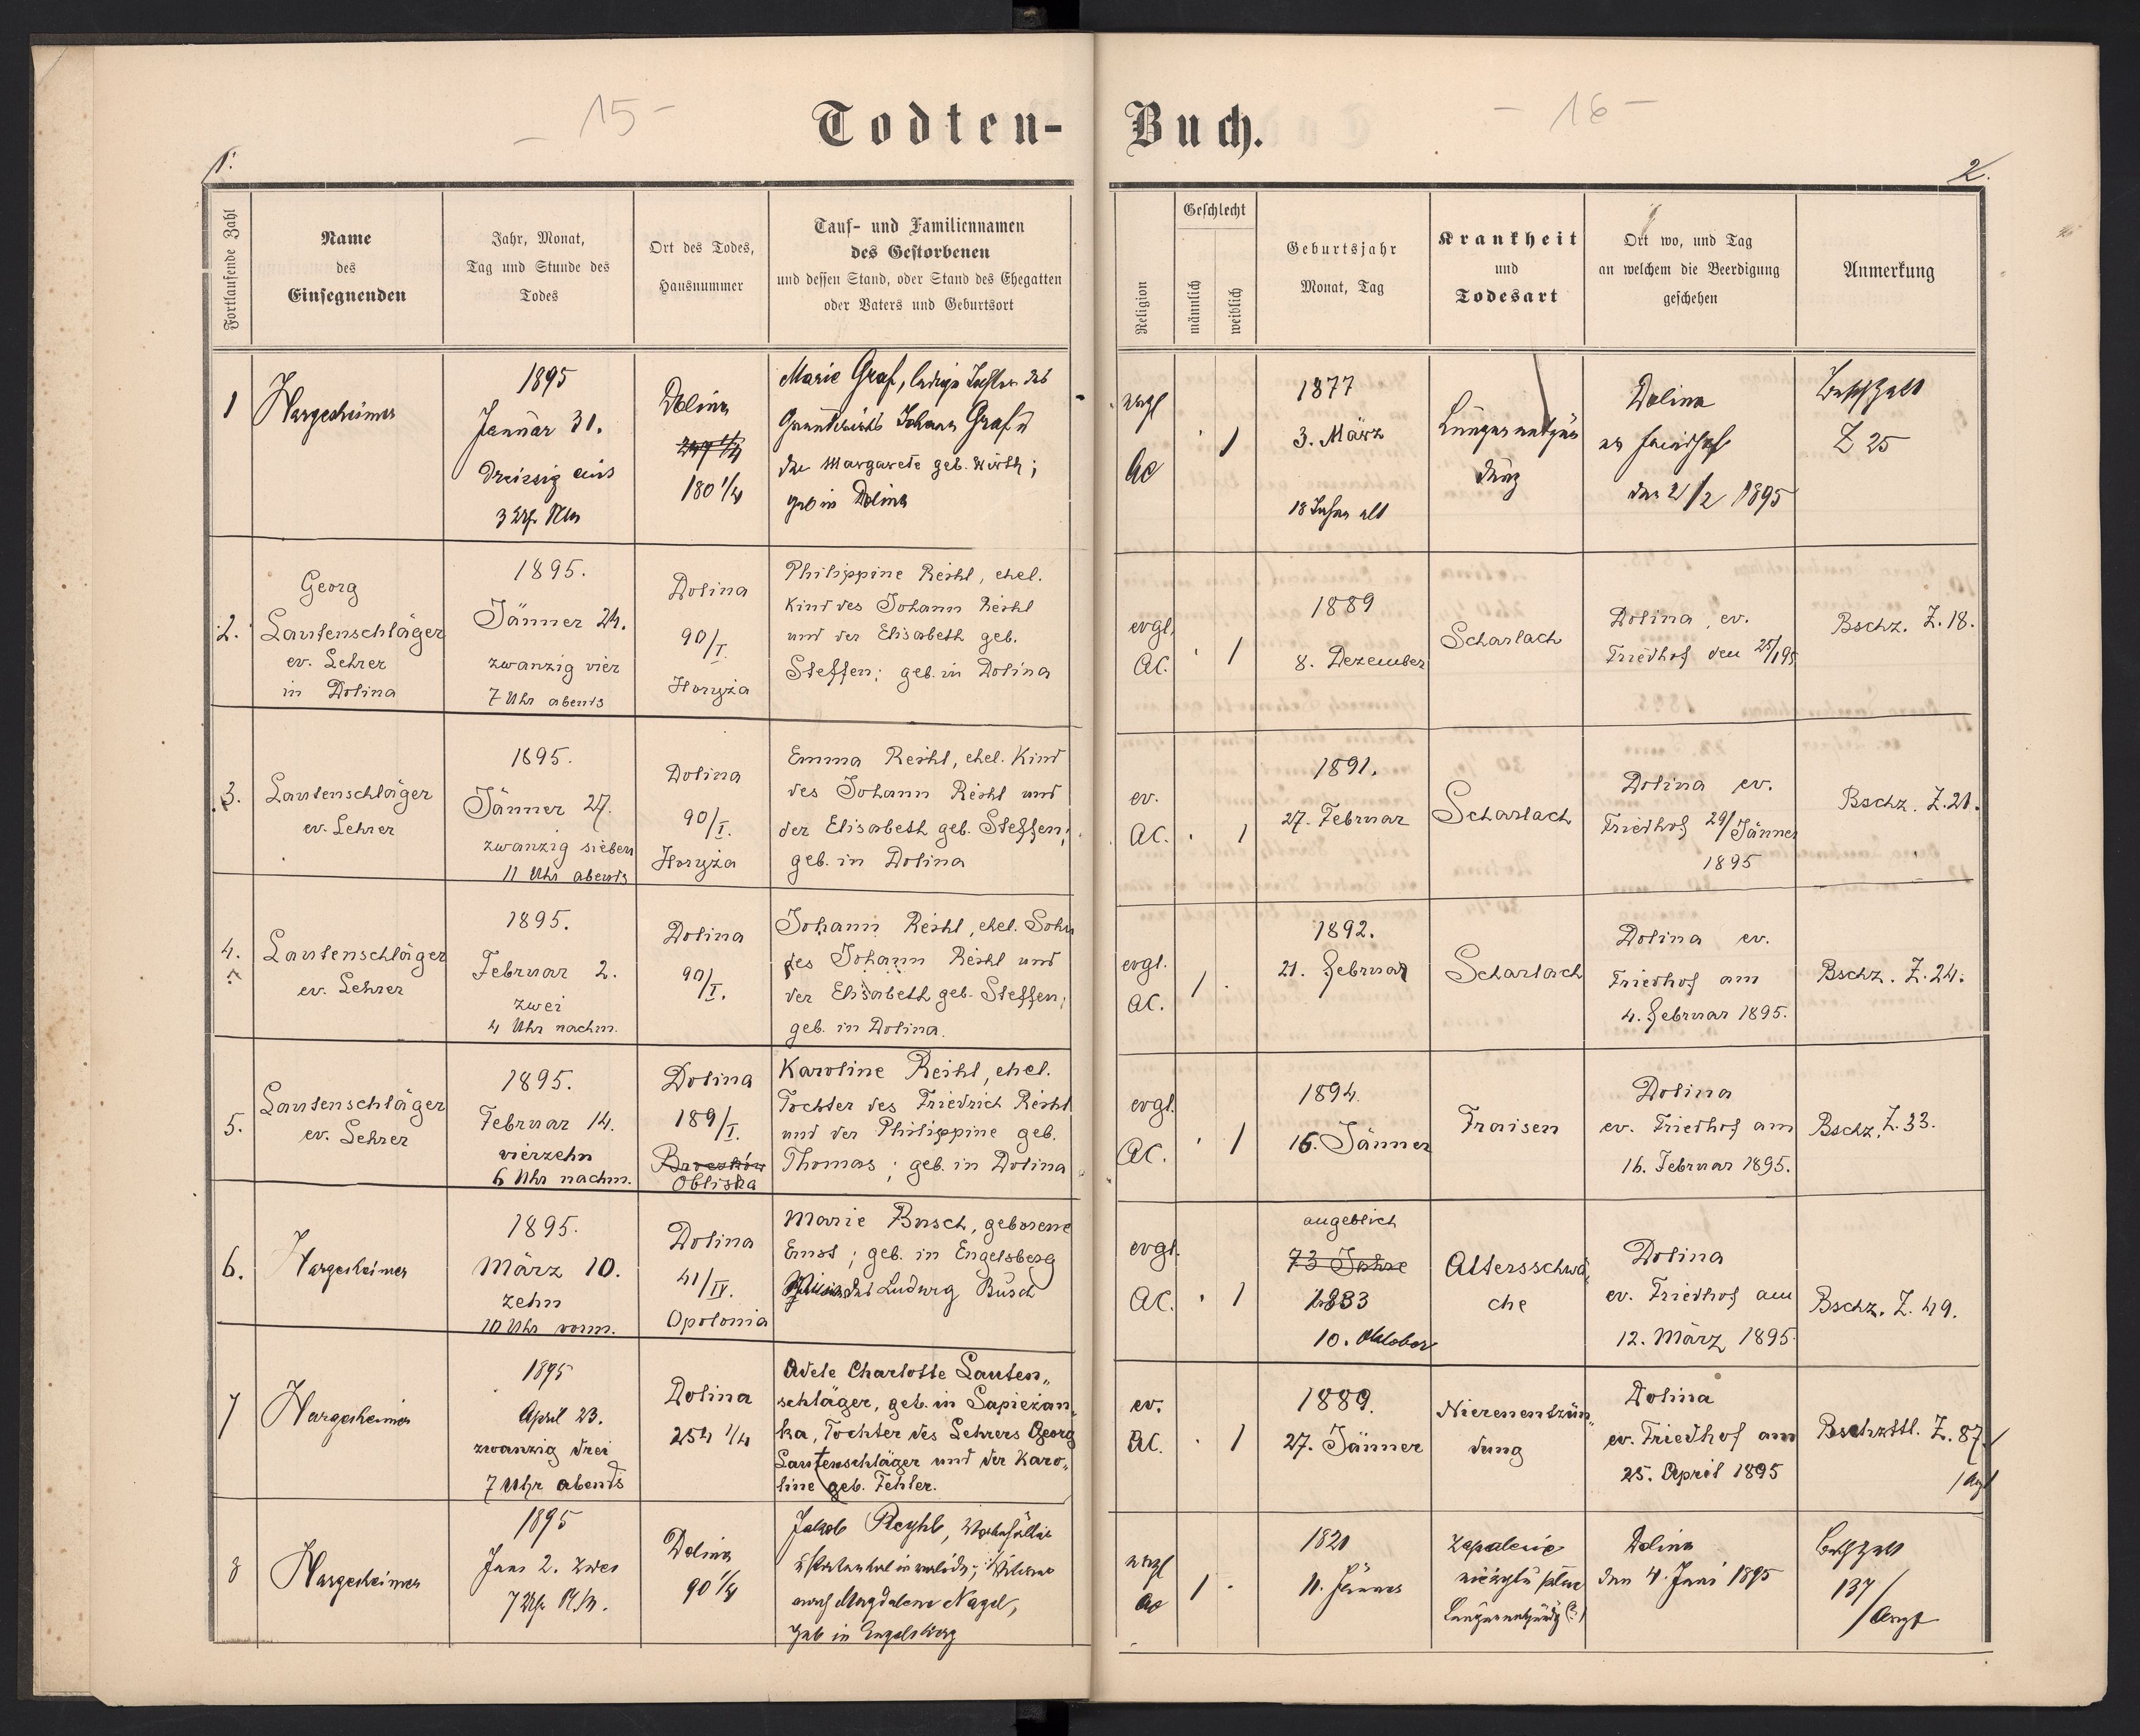 - 15 -
Todten-
Buch.
- 16 -
1.
2.
Fortlaufende Zahl
Name
des
Einsegnenden
Jahr, Monat,
Tag und Stunde des
Todes
Ort des Todes,
Hausnummer
Tauf- und Familiennamen
des Gestorbenen
und dessen Stand, oder Stand des Ehegatten
oder Vaters und Geburtsort
Religion
Geschlecht
männlich
weiblich
Geburtsjahr
Monat, Tag
Krankheit
und
Todesart
Ort wo, und Tag
an welchem die Beerdigung
geschehen
Anmerkung
1
Hargesheimer
1895
Januar 31.
dreissig eins
3 Uhr
Dolina
180 1/4
Marie Graf, ledige Tochter des
Grundwirts Johann Graf u
der Margarete geb. Wirth;
geb in Dolina
evgl
AC
1
1877
3. März
18 Jahre alt
Lungenentzün
dung
Dolina
ev Friedhof
den 2/2 1895
Z 25
2.
Georg
Lautenschläger
ev. Lehrer
in Dolina
1895.
Jänner 24.
zwanzig vier
7 Uhr abends
Dolina
90/I.
Horyża
Philippine Reihl, ehel.
Kind des Johann Reihl
und der Elisabeth geb.
Steffen; geb. in Dolina
evgl.
AC.
1
1889
8. Dezember
Scharlach
Dolina, ev.
Friedhof den 25/1 95
Bschz. Z. 18.
3.
Lautenschläger
ev. Lehrer
1895.
Jänner 27.
zwanzig sieben
11 Uhr abends
Dolina
90/I.
Horyża
Emma Reihl, ehel. Kind
des Johann Reihl und
der Elisabeth geb. Steffen;
geb. in Dolina
ev.
AC.
1
1891.
27. Februar
Scharlach
Dolina ev.
Friedhof 29/Jänner
1895
Bschz. Z. 21.
4.
Lautenschläger
ev. Lehrer
1895.
Februar 2.
zwei
4 Uhr nachm.
Dolina
90/I.
Johann Reihl, ehel. Sohn
des Johann Reihl und
der Elisabeth geb. Steffen;
geb. in Dolina.
evgl.
AC.
1
1892.
21. Februar
Scharlach
Dolina ev.
Friedhof am
4. Februar 1895.
Bschz. Z. 24.
5.
Lautenschläger
ev. Lehrer
1895.
Februar 14.
vierzehn
6 Uhr nachm.
Dolina
189/I.
Obliska
Karoline Reihl, ehel.
Tochter des Friedrich Reihl
und der Philippine geb.
Thomas; geb. in Dolina
evgl.
AC.
1
1894.
16. Jänner
Fraisen
Dolina
ev. Friedhof am
16. Februar 1895.
Bschz. Z. 33.
6.
Hargesheimer
1895.
März 10.
zehn
10 Uhr vorm.
Dolina
41/IV.
Opolonia
Marie Busch, geborene
Ernst; geb. in Engelsberg
des Ludwig Busch
evgl.
AC.
1
angeblich
73 Jahre
1833
10. Oktober
Altersschwä-
che
Dolina
ev. Friedhof am
12. März 1895.
Bschz. Z. 49.
7
Hargesheimer
1895
April 23.
zwanzig drei
7 Uhr abends
Dolina
254 1/4
Adele Charlotte Lauten-
schläger, geb. in Sapieżan-
ka, Tochter des Lehrers Georg
Lautenschläger und der Karo-
line geb. Fehler.
ev.
AC.
1
1889.
27. Jänner
Nierenentzün-
dung
Dolina
ev. Friedhof am
25. April 1895
Bschzttl. Z. 87
8
Hargesheimer
1895
Juni 2. zwei
7 Uhr
Dolina
90 1/4
Jakob Reyhl,
nach Magdalena Nagel,
geb in Engelsberg
evgl
AC
1
1821
11. Jänner
zapalenie
Lungenentzündg (?)
Dolina
den 4. Juni 1895
137/